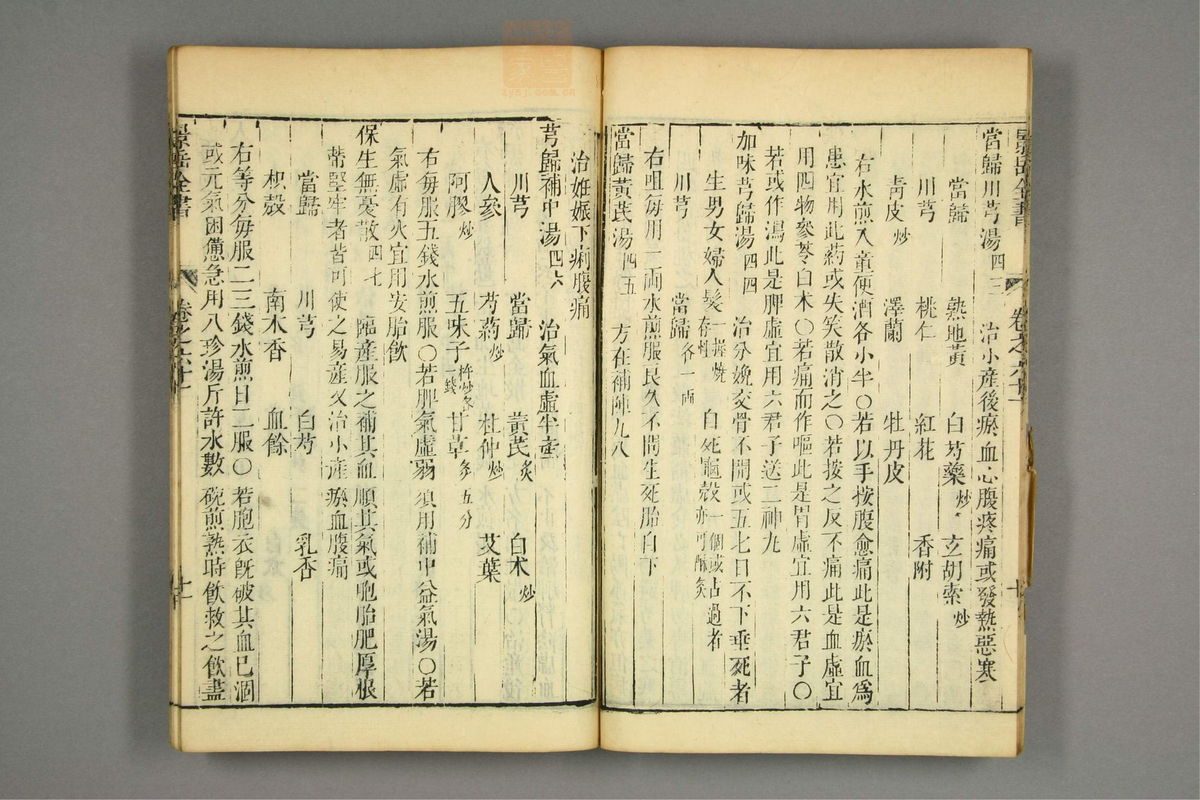 景岳全書 卷之六十一 十
當歸川芎湯四三 治小產後瘀血心腹疼痛或發熱惡寒
當歸 熟地黃 白芍藥炒 玄胡索炒
川芎 桃仁 紅花 香附
靑皮炒 澤蘭 牡丹皮
右水煎入童便酒各小半○若以手按腹愈痛此是瘀血爲
患宜用此藥或失笑散消之○若按之反不痛此是血虛宜
用四物參苓白朮○若痛而作嘔此是胃虛宜用六君子○
若或作瀉此是脾虛宜用六君子送二神丸
加味芎歸湯四四 治分娩交骨不開或五七日不下垂死者
生男女婦人髮一握燒存性 自死龜殼一個或占過者亦可酥炙
川芎 當歸各一兩
右咀每用一兩水煎服良久不問生死胎自下
當歸黃芪湯四五 方在補陣九八
治姙娠下痢腹痛
芎歸補中湯四六 治氣血虛半產
川芎 當歸 黃芪炙 白朮炒
人參 芍藥炒 杜仲炒 艾葉
阿膠炒 五味子杵炒各一錢 甘草炙五分
右每服五錢水煎服○若脾氣虛弱須用補中益氣湯○若
氣虛有火宜用安胎飮
保生無憂散四七 臨產服之補其血順其氣或胞胎肥厚根
蒂堅牢者皆可使之易產又治小產瘀血腹痛
當歸 川芎 白芍 乳香
枳殼 南木香 血餘
右等分每服二三錢水煎日二服○若胞衣旣破其血已涸
或元氣困憊急用八珍湯斤許水數碗煎熟時飮救之飮盡
景岳全書 卷之六十一 十一